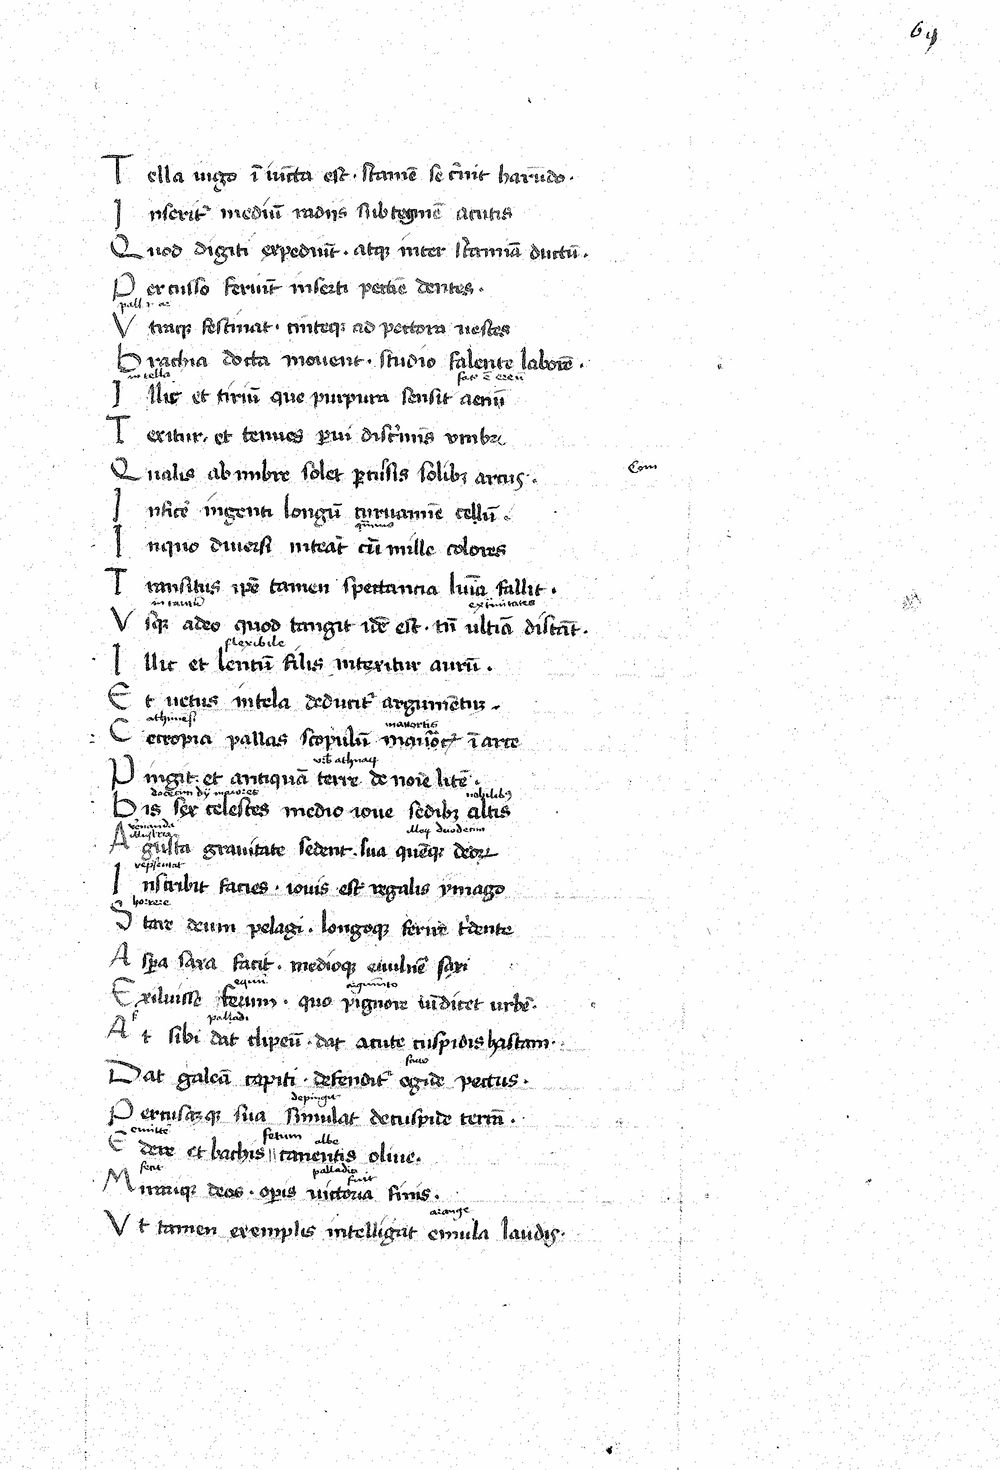 69
Tella iugo ī iūcta est · stamē secr̄nit harūdo ·
Inserit᷑ mediū radijs subtegmē acutis
Quod digiti expediūt · atqꝫ inter stamīa ductū ·
Percusso feriūt inserti pectīe dentes ·
pall
Vtraqꝫ festinat · cinteqꝫ ad pectora uestes
Brachia docta mouent · studio falente laborē ·
in tella
Illic et tiriū que purpura sensit aenū
Texitur · et tenues parui discriminis vmbre
Qualis ab imbre solet percussis solibꝫ arcus ·
Com
Inficē ingenti longū curuamīe cellū ·
Inquo diuersi niteāt cū mille colores
Transitus ipē tamen spectancia lumīa fallit ·
extimitates
Vsqꝫ adeo quod tangit idē est · tn̄ ultīa distāt ·
flexibile
Illic et lentū filis intexitur aurū ·
Et uetus intela deducit᷑ argumētuꝫ ·
mauortis
Cecropia pallas scopulū mauortꝭ ī arce
Pingit · et antiquā terre de noīe litē ·
nobilibꝫ
Bis sex celestes medio ioue sedibꝫ altis
illoꝝ duodecim
Agusta grauitate sedent · sua quēqꝫ deoꝝ
Inscribit facies · iouis est regalis ymago
Stare deum pelagi · longoqꝫ ferire tr̄dente
Aspa saxa facit · medioqꝫ euulnē saxi
equū
Exiluisse ferum · quo pignore uēdicet urbē ·
palladi
At sibi dat clipeū · dat acute cuspidis hastam ·
scuto
Dat galeā capiti · defendit᷑ egide pectus ·
depingit
Percussaqꝫ sua simulat decuspide terrā ·
fetum albe
Edere et bachis canentis oliue ·
palladis fuit
Mirariqꝫ deos · opis uictoria finis ·
arange
Vt tamen exemplis intelligat emula laudis ·